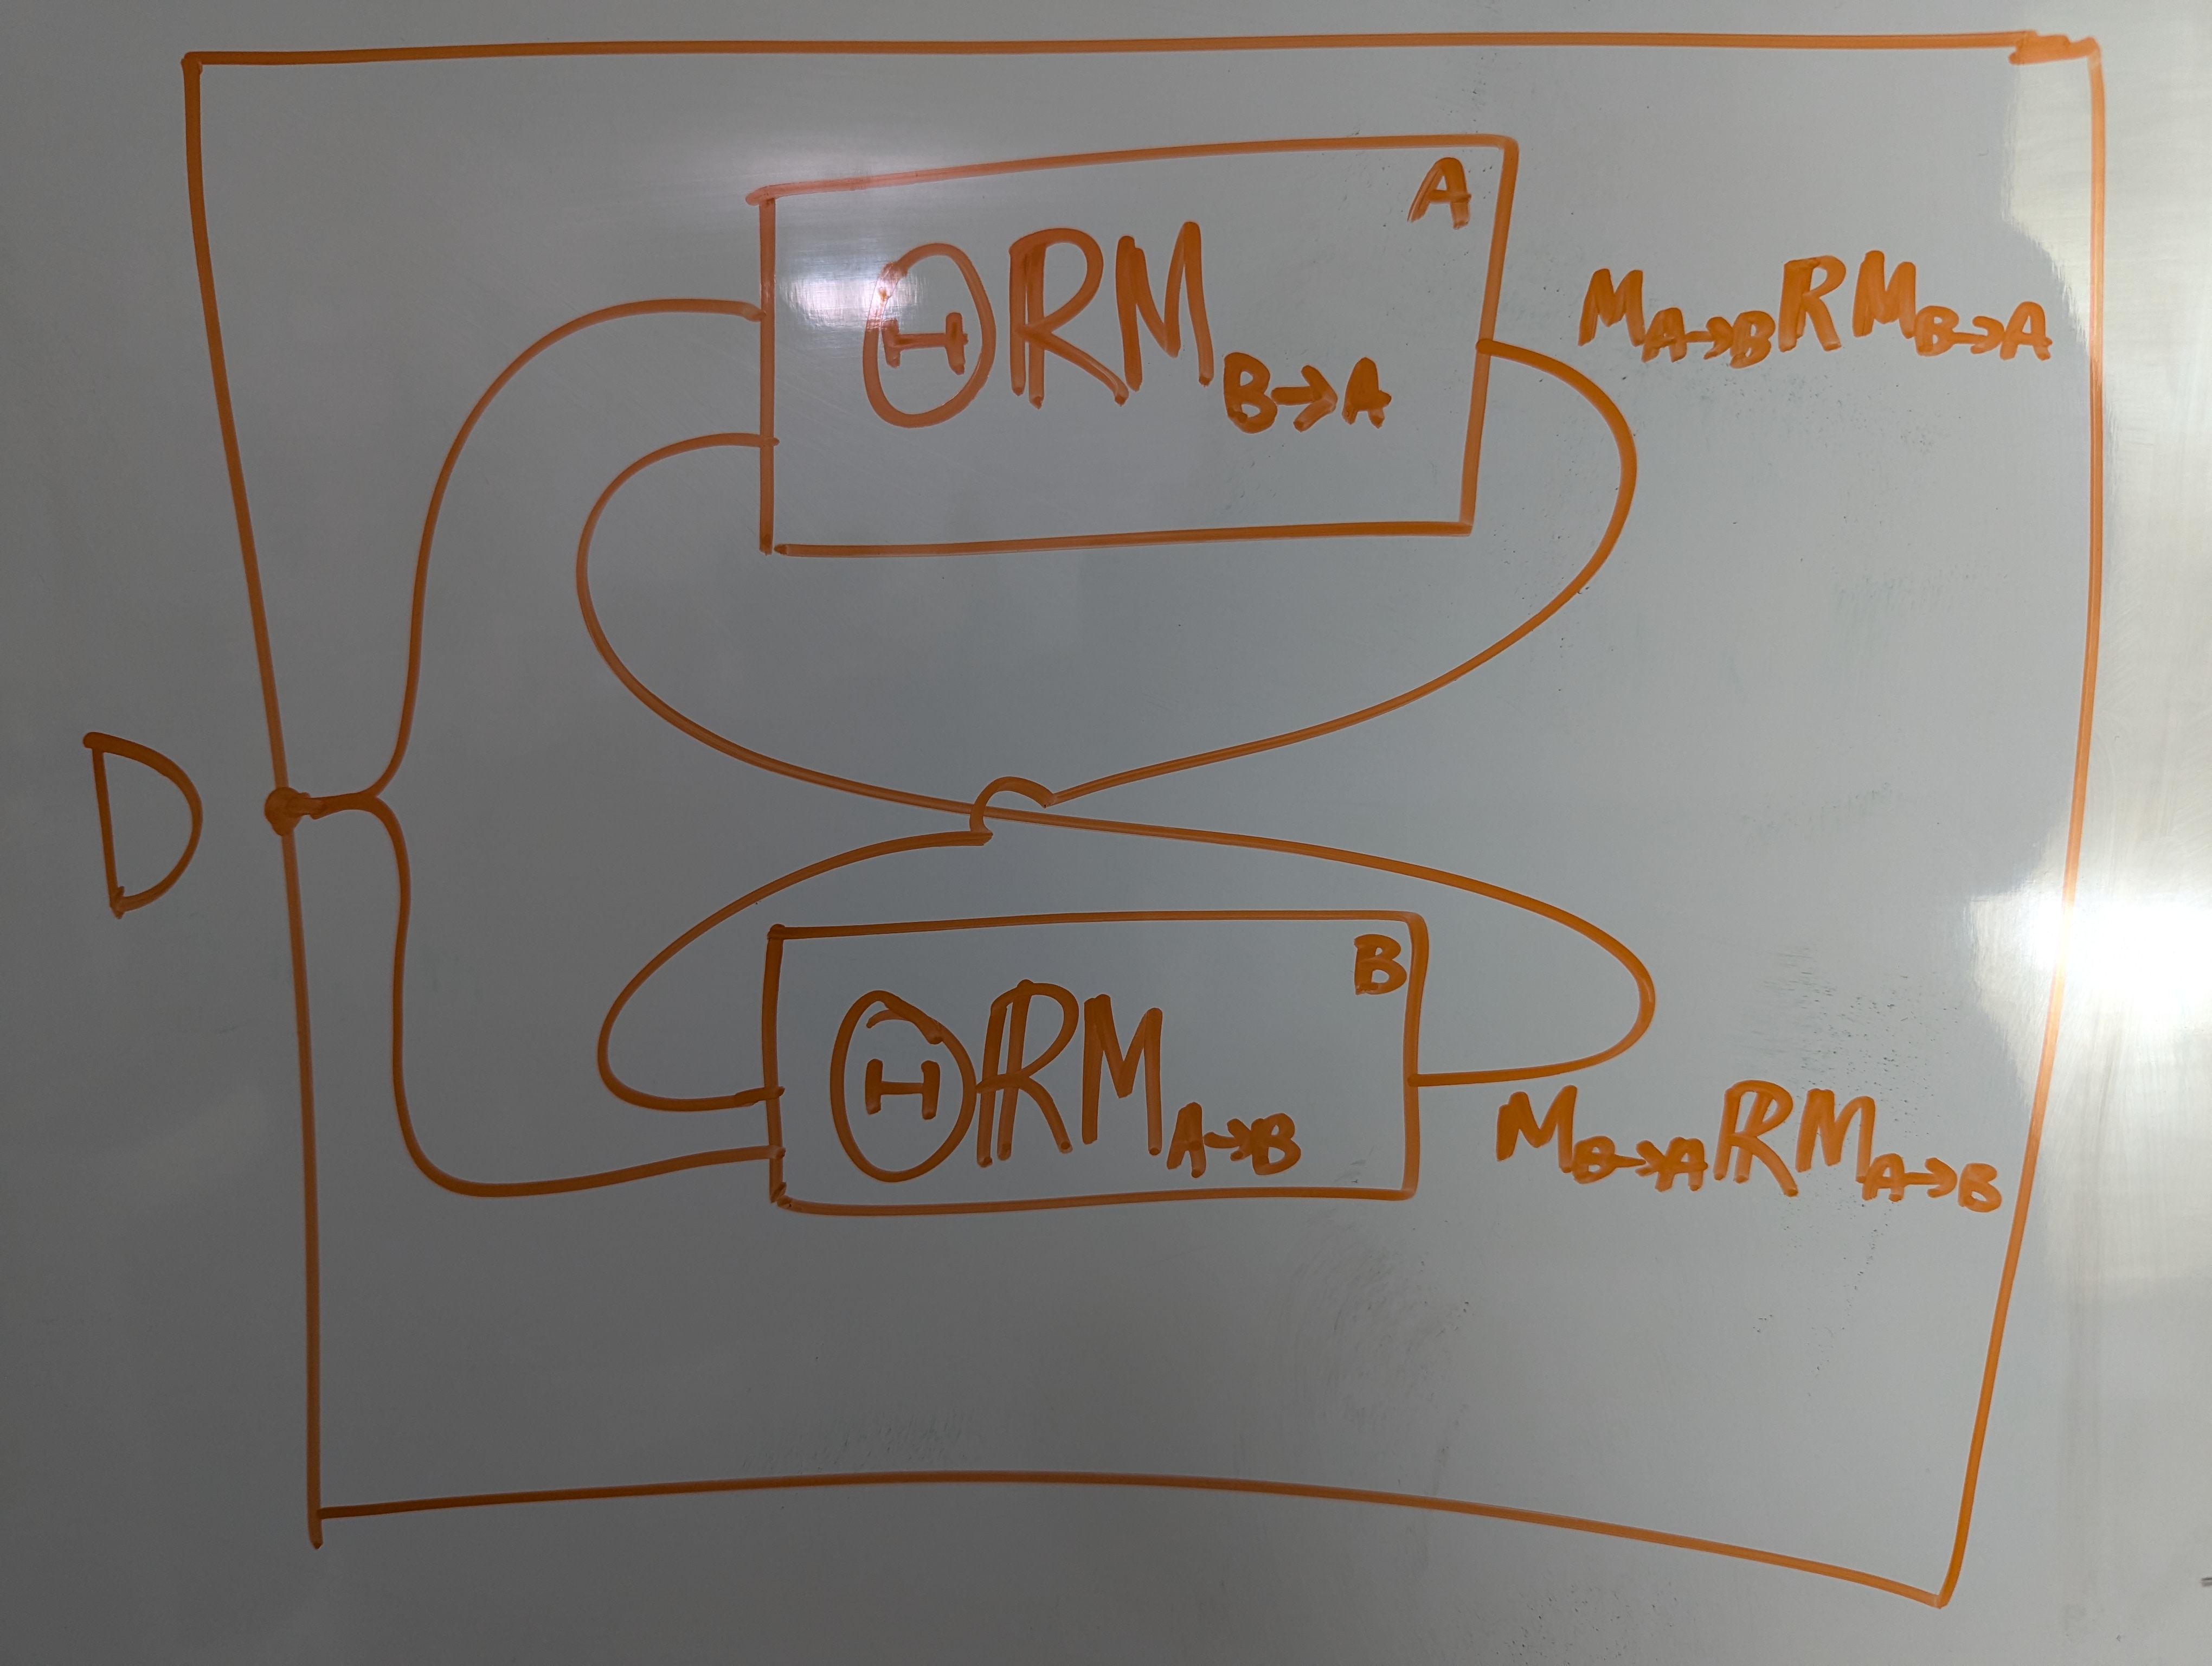 A
ΘRM_{B→A}
M_{A→B}RM_{B→A}
D
B
ΘRM_{A→B}
M_{B→A}RM_{A→B}